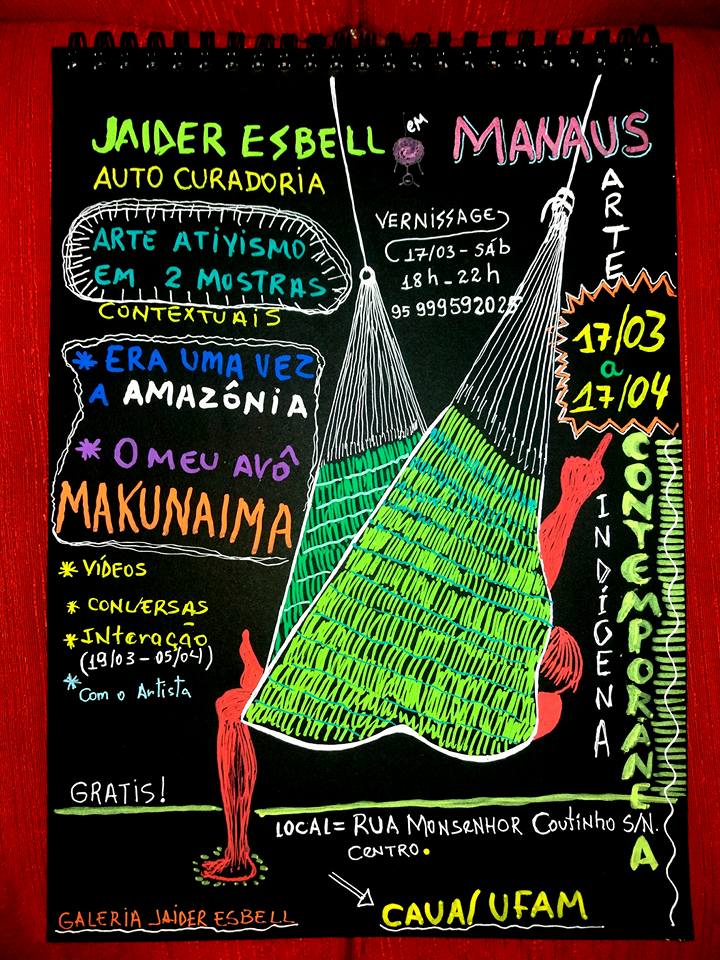 JAIDER ESBELL em MANAUS
AUTO CURADORIA
ARTE ATIVISMO
EM 2 MOSTRAS
CONTEXTUAIS
VERNISSAGE
17/03 - SÁb
18h - 22h
95 999592025
* ERA UMA VEZ
A AMAZÔNIA
* O MEU AVÔ
MAKUNAIMA
* VÍDEOS
* CONVERSAS
* INteração
(19/03 - 05/04)
* Com o Artista
ARTE
17/03
a
17/04
INDÍGENA
CONTEMPORÂNEA
GRATIS!
LOCAL= RUA MONSENHOR Coutinho S/N.
CENTRO.
CAUA/ UFAM
GALERIA JAIDER ESBELL